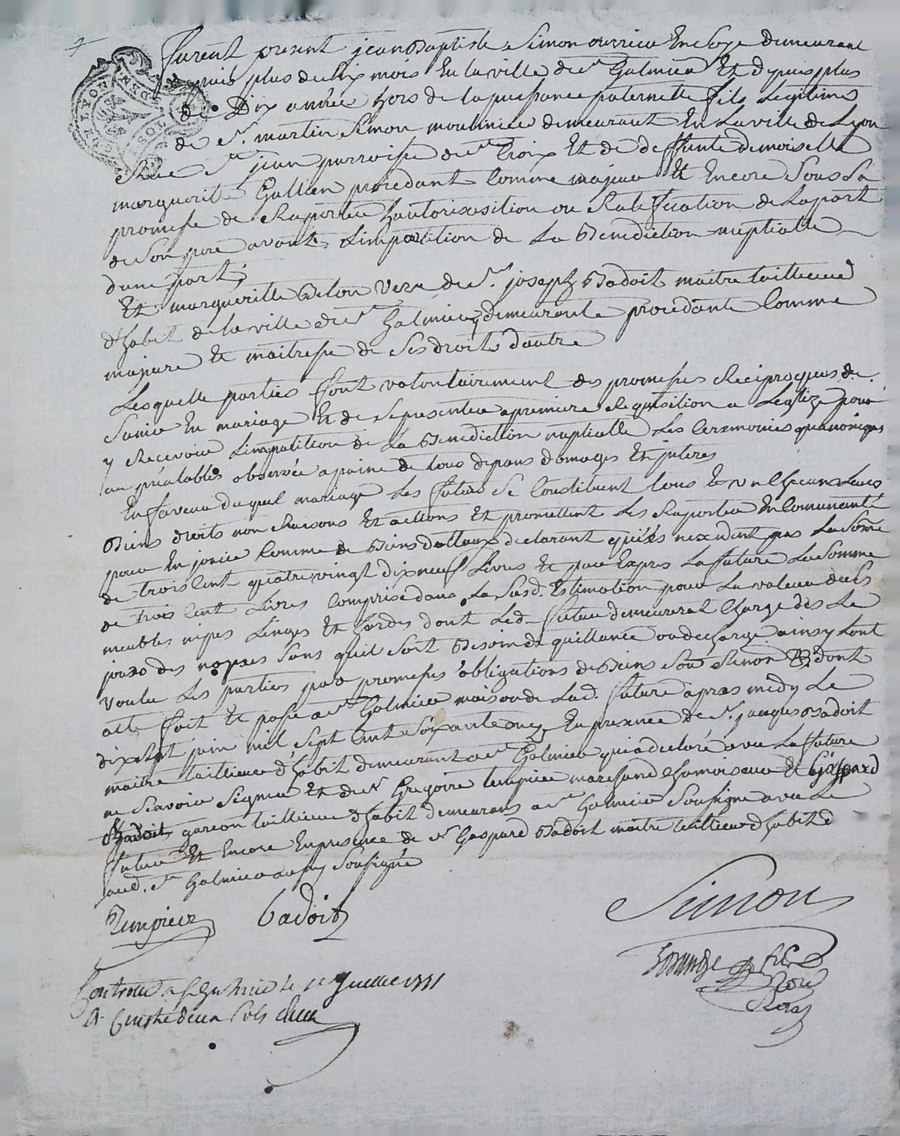 furent present jean Baptiste Simon ouvrier En Soye demeurant
depuis plus de six mois En la ville de St Galmier Et depuis plus
de Dix année hors de la puissance paternelle fils Legitime
de Sr. martin Simon moulinier demeurant En La ville de Lyon
Rüe St jean parroisse de Ste Croix Et de deffunte demoiselle
marguerite Gallien procedant Comme majeur Et Encore Sous La
promesse de Raporter Lautorisasition ou Ratification de La part
de Son pere avant Limpartition de La Benediction nuptialle
dune part;
Et margueritte Velon veve de Sr. joseph Badoit maitre tailleur
d'habit de la ville de St Galmier y demeurante procedante Comme
majeure Et maitresse de Ses droit d'autre
Lesquelle parties font volontairement des promesses Reciproques de
Sunir En mariage Et de se presenter a premiere Requisition a Leglize pour
y Recevoir Limpartition de La Benediction nuptialle Les Ceremonies quanoniques
au préalables observée a peine de tous depans domages Et interes
En faveur duquel mariage Les futur Se Constituent tous Et un Chacun Leurs
Biens droits non Raisons Et actions Et promettent Les Raporter En Communauté
pour En jouir Comme de Biens dottaux declarant qu'ils nexcedent pas La Some
de trois Cent quatre vingt dix neuf Livres Et pour Expres La future La Somme
de trois Cent Livres Comprise dans La Susd. Estimation pour La valeur de Ses
meubles nipes Linges Et hardes dont Led. futur demeurerat Chargé dès Le
jour des nopses Sans quil Soit Besoin de quittance ou decharge ainsy Lont
voulu Les parties par promesses obligations de Biens dont
acte fait Et passé a St Galmier maison de Lad. future apres midy Le
dix Sept juin mil Sept Cent Soixante onze En presence de Sr. jacques Badoit
maitre tailleur d'habit demeurant a St Galmier qui a declaré avec La future
ne Scavoir Signer Et de Sr Gregoire tempier marchand Chamoiseur Et Gaspard
Badoit garcon tailleur d'habit demeurans a St Galmier Soussigné avec Le
futur Et Encore En presence de Sr Gaspard Badoit maitre tailleur d'habit d
aud. St Galmier aussy Soussigné
Tempier badoit Simon
Controllé a St Galmier le juillet 1771